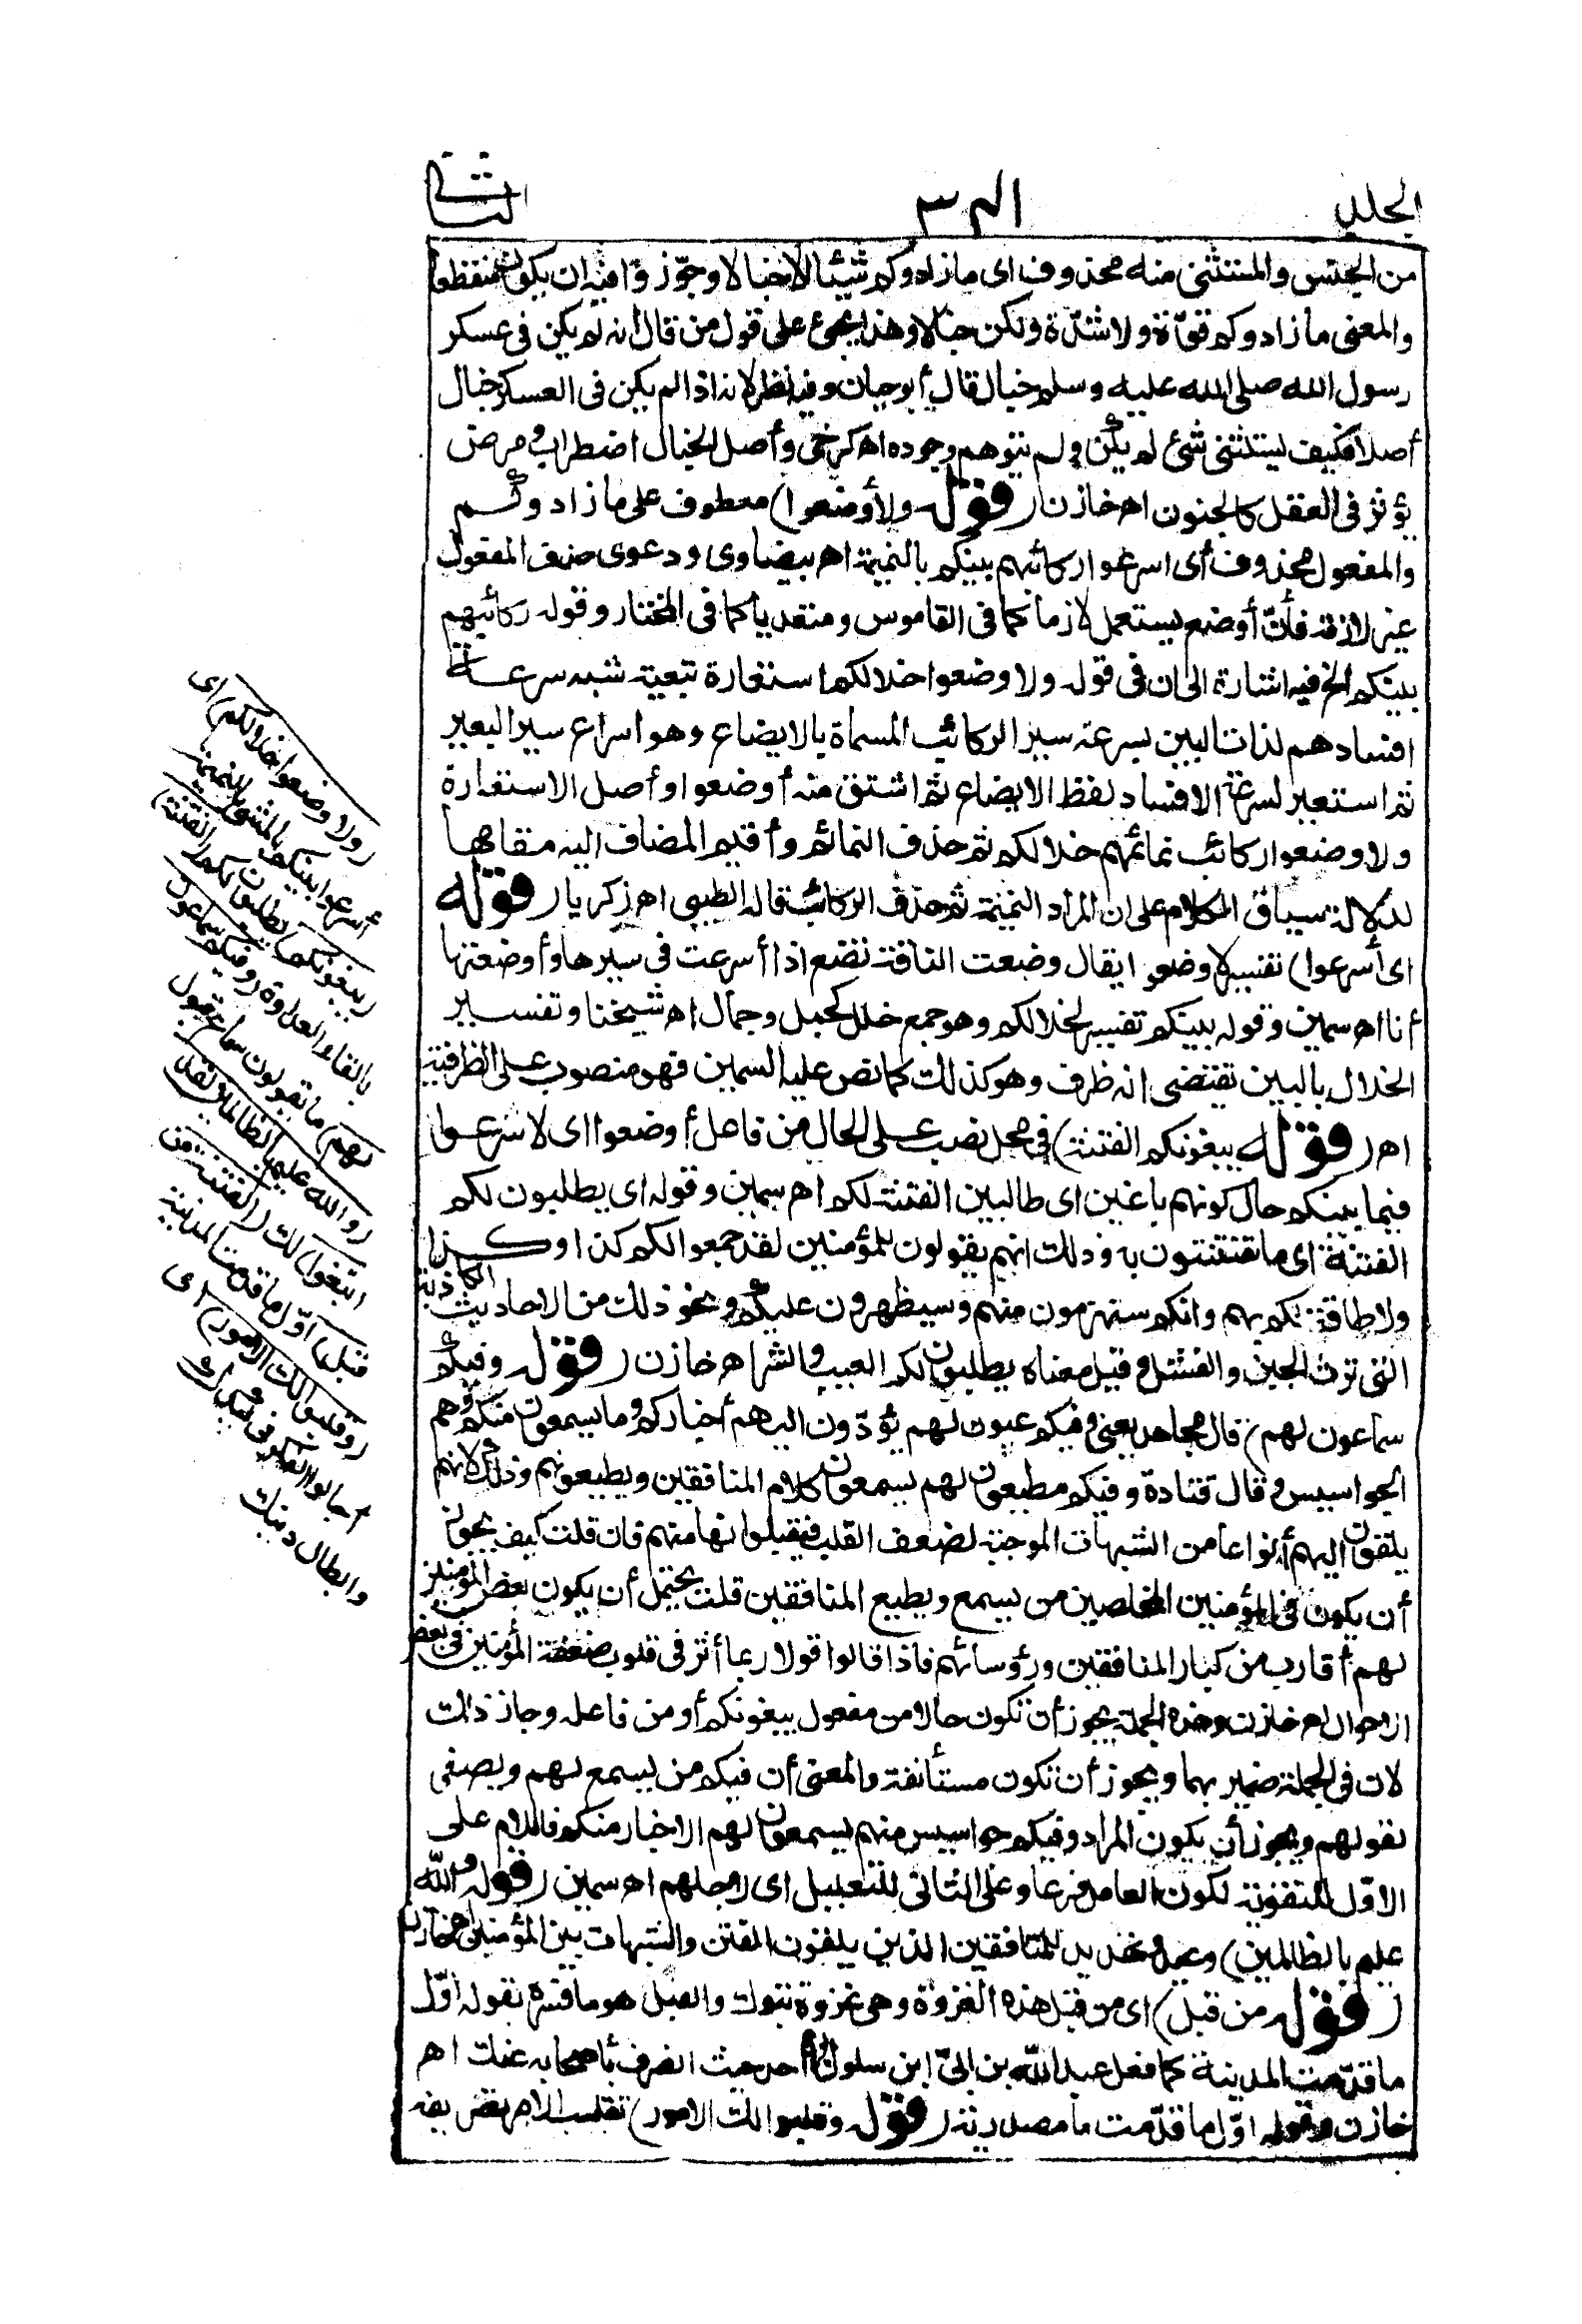 الجلد
الثاني
من الجنس والمستثنى منه محذوف اى ما زادوكم شيئا الا خبالا وجوّزوا فيه ان يكون منقطعا
والمعنى ما زادوكم قوّة ولا شدّة ولكن خبالا وهذا يجئ على قول من قال انه لم يكن فى عسكر
رسول الله صلى الله عليه وسلم خبال قال أبو حيان وفيه نظر لانه اذا لم يكن فى العسكر خبال
أصلا فكيف يستثنى شئ لم يكن ولم يتوهم وجوده اهـ كرخى وأصل الخبال اضطراب ومرض
يؤثر فى العقل كالجنون اهـ خازن (قوله ولأوضعوا) معطوف على ما زادوكم
والمفعول محذوف أى اسرعوا ركائبهم بينكم بالنميمة اهـ بيضاوى ودعوى حذف المفعول
غير لازمة فأنّ أوضع يستعمل لازما كما فى القاموس ومتعديا كما فى المختار وقوله ركائبهم
بينكم الخ فيه اشارة الى ان فى قوله ولا وضعوا خلالكم استعارة تبعية شبه سرعة
افسادهم لذات البين بسرعة سير الركائب المسماة بالايضاع وهو اسراع سير البعير
ثم استعير لسرعة الافساد لفظ الايضاع ثم اشتق منه أوضعوا وأصل الاستعارة
ولا وضعوا ركائب نمائمهم خلالكم ثم حذف النمائم وأقيم المضاف اليه مقامها
لدلالة سياق الكلام على ان المراد النميمة ثم حذف الركائب قاله الطيبى اهـ زكريا (قوله
اى أسرعوا) تفسير لا وضعوا يقال وضعت الناقة تضع اذا أسرعت فى سيرها وأوضعتها
أنا اهـ سمين وقوله بينكم تفسير لخلالكم وهو جمع خلل كجبل وجمال اهـ شيخنا وتفسير
الخلال بالبين يقتضى انه ظرف وهو كذلك كما نص عليه السمين فهو منصوب على الظرفية
اهـ (قوله يبغونكم الفتنة) فى محل نصب على الحال من فاعل أوضعوا اى لا سرعوا
فيما بينكم حال كونهم باغين اى طالبين الفتنة لكم اهـ سمين وقوله اى يطلبون لكم
الفتنة اى ما تفتتنون به وذلك انهم يقولون للمؤمنين لقد جمعوا لكم كذا وكذا
ولا طاقة لكم بهم وانكم ستهزمون منهم وسيظهرون عليكم ونحو ذلك من الاحاديث الكاذبة
التى تورث الجبن والفشل وقيل معناه يطلبون لكم العيب والشر اهـ خازن (قوله وفيكم
سماعون لهم) قال مجاهد يعنى وفيكم عيون لهم يؤدّون اليهم أخباركم وما يسمعون منكم وهم
الجواسيس وقال قتادة وفيكم مطيعون لهم يسمعون كلام المنافقين ويطيعونهم وذلك لانهم
يلقون اليهم أنواعا من الشبهات الموجبة لضعف القلب فيقبلوانها منهم فان قلت كيف يجوز
أن يكون فى المؤمنين المخلصين من يسمع ويطيع المنافقين قلت يحتمل أن يكون بعض المؤمنين
لهم أقارب من كبار المنافقين ورؤسائهم فاذا قالوا قولا ربما أثر فى قلوب ضعفة المؤمنين فى بعض
الاحوال اهـ خازن وهذه الجملة يجوز أن تكون حالا من مفعول يبغونكم أو من فاعله وجاز ذلك
لان فى الجملة ضميريهما ويجوز أن تكون مستأنفة والمعنى أن فيكم من يسمع لهم ويصغى
لقولهم ويجوز أن يكون المراد وفيكم جواسيس منهم يسمعون لهم الاخبار منكم فاللام على
الاوّل للتقوية لكون العامل فرعا وعلى الثانى للتعليل اى لاجلهم اهـ سمين (قوله والله
عليم بالظالمين) وعيد وتهديد للمنافقين الذين يلقون الفتن والشبهات بين المؤمنين اهـ خازن
(قوله من قبل) اى من قبل هذه الغزوة وهى غزوة تبوك والقبل هو ما فسره بقوله اوّل
ما قدّمت المدينة كما فعل عبد الله بن ابىّ ابن سلول احد حيث انصرف بأصحابه عنك اهـ
خازن وقوله اوّل ما قدّمت ما مصدرية (قوله وقلبوا لك الامور) تقليب الامر تصريفه
(ولا وضعوا خلالكم) اى
أسرعوا بينكم بالمشى بالنميمة
(يبغونكم) يطلبون لكم (الفتنة)
بالقاء العداوة (وفيكم سماعون
لهم) ما يقولون سماع قبول
(والله عليم بالظالمين لقد
ابتغوا) لك (الفتنة من
قبل) اوّل ما قدمت المدينة
(وقلبوا لك الامور) اى
أجالوا الفكر فى كيدك
وابطال دينك